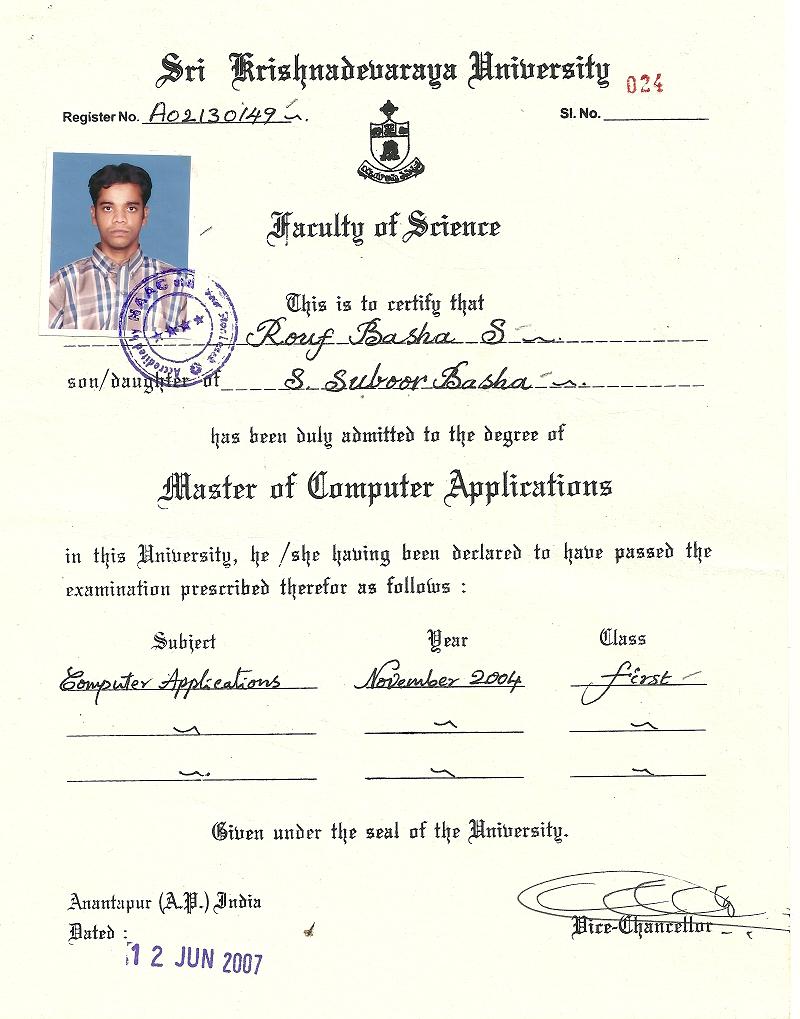 Sri Krishnadevaraya University
024
Register No. A02130149
Sl. No.
Faculty of Science
This is to certify that
Rouf Basha S
son/daughter of S. Suboor Basha
has been duly admitted to the degree of
Master of Computer Applications
in this University, he /she having been declared to have passed the
examination prescribed therefor as follows :
Subject Year Class
Computer Applications November 2004 first
Given under the seal of the University.
Anantapur (A.P.) India
Dated :
12 JUN 2007
Vice-Chancellor
Accredited by NAAC